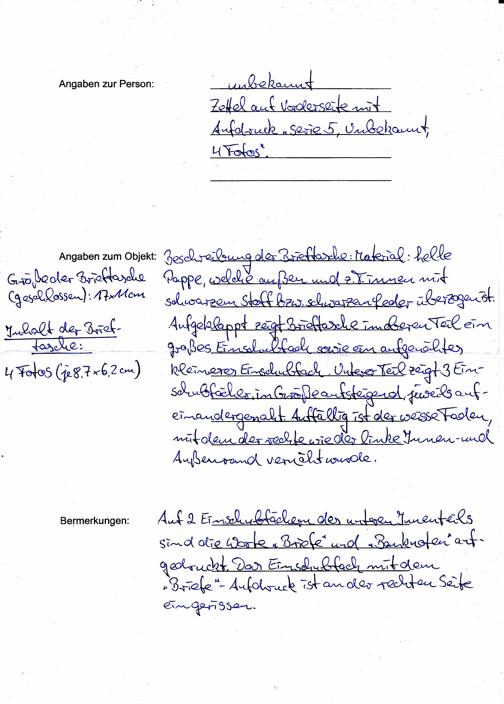 Angaben zur Person: unbekannt
Zettel auf Vorderseite mit
Aufdruck „Serie 5, Unbekannt,
4 Fotos".
Angaben zum Objekt: Beschreibung der Brieftasche: Material: helle
Pappe, welche außen und z.T. innen mit
schwarzem Stoff bzw. schwarzem Leder überzogen ist.
Aufgeklappt zeigt Brieftasche im oberen Teil ein
großes Einschubfach sowie ein aufgenähtes
kleineres Einschubfach. Unterer Teil zeigt 3 Ein-
schubfächer, in Größe aufsteigend, jeweils auf-
einandergenäht. Auffällig ist der weisse Faden,
mit dem der rechte wie der linke Innen- und
Außenrand vernäht wurde.
Größe der Brieftasche
(geschlossen): 17x11cm
Inhalt der Brief-
tasche:
4 Fotos (je 8,7 x 6,2 cm)
Bermerkungen: Auf 2 Einschubfächern des unteren Innenteils
sind die Worte „Briefe" und „Banknoten" auf-
gedruckt. Das Einschubfach mit dem
„Briefe"-Aufdruck ist an der rechten Seite
eingerissen.